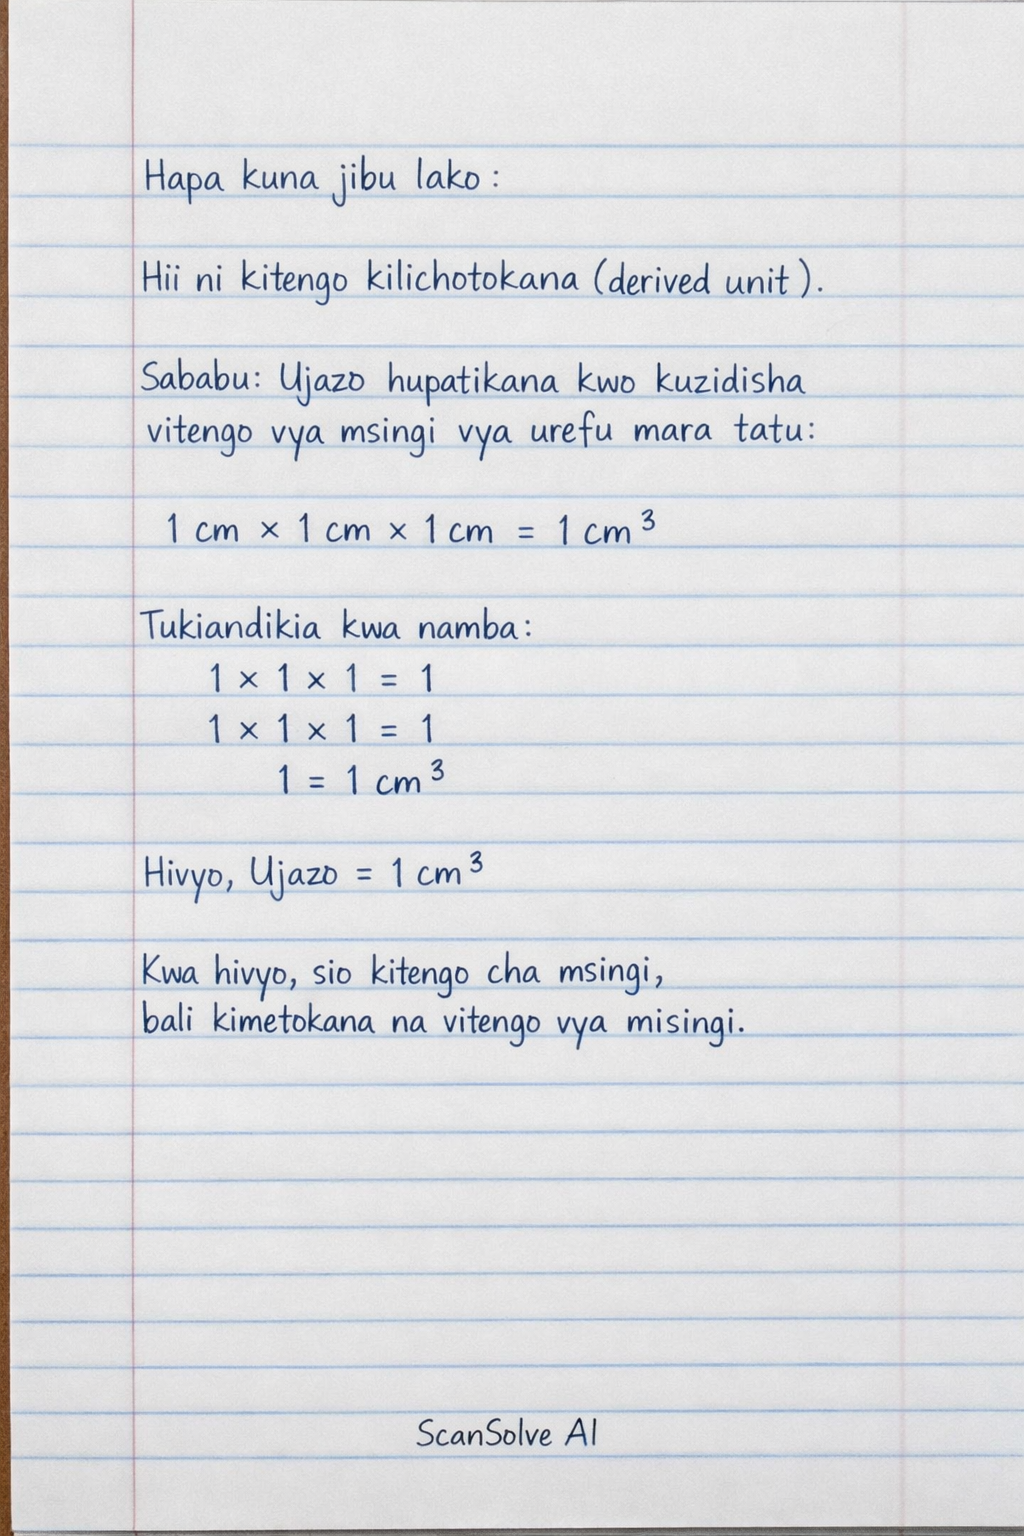 Hapa kuna jibu lako:
Hii ni kitengo kilichotokana (derived unit).
Sababu: Ujazo hupatikana kwo kuzidisha
vitengo vya msingi vya urefu mara tatu:
1 cm × 1 cm × 1 cm = 1 cm³
Tukiandikia kwa namba:
1 × 1 × 1 = 1
1 × 1 × 1 = 1
1 = 1 cm³
Hivyo, Ujazo = 1 cm³
Kwa hivyo, sio kitengo cha msingi,
bali kimetokana na vitengo vya misingi.
ScanSolve AI